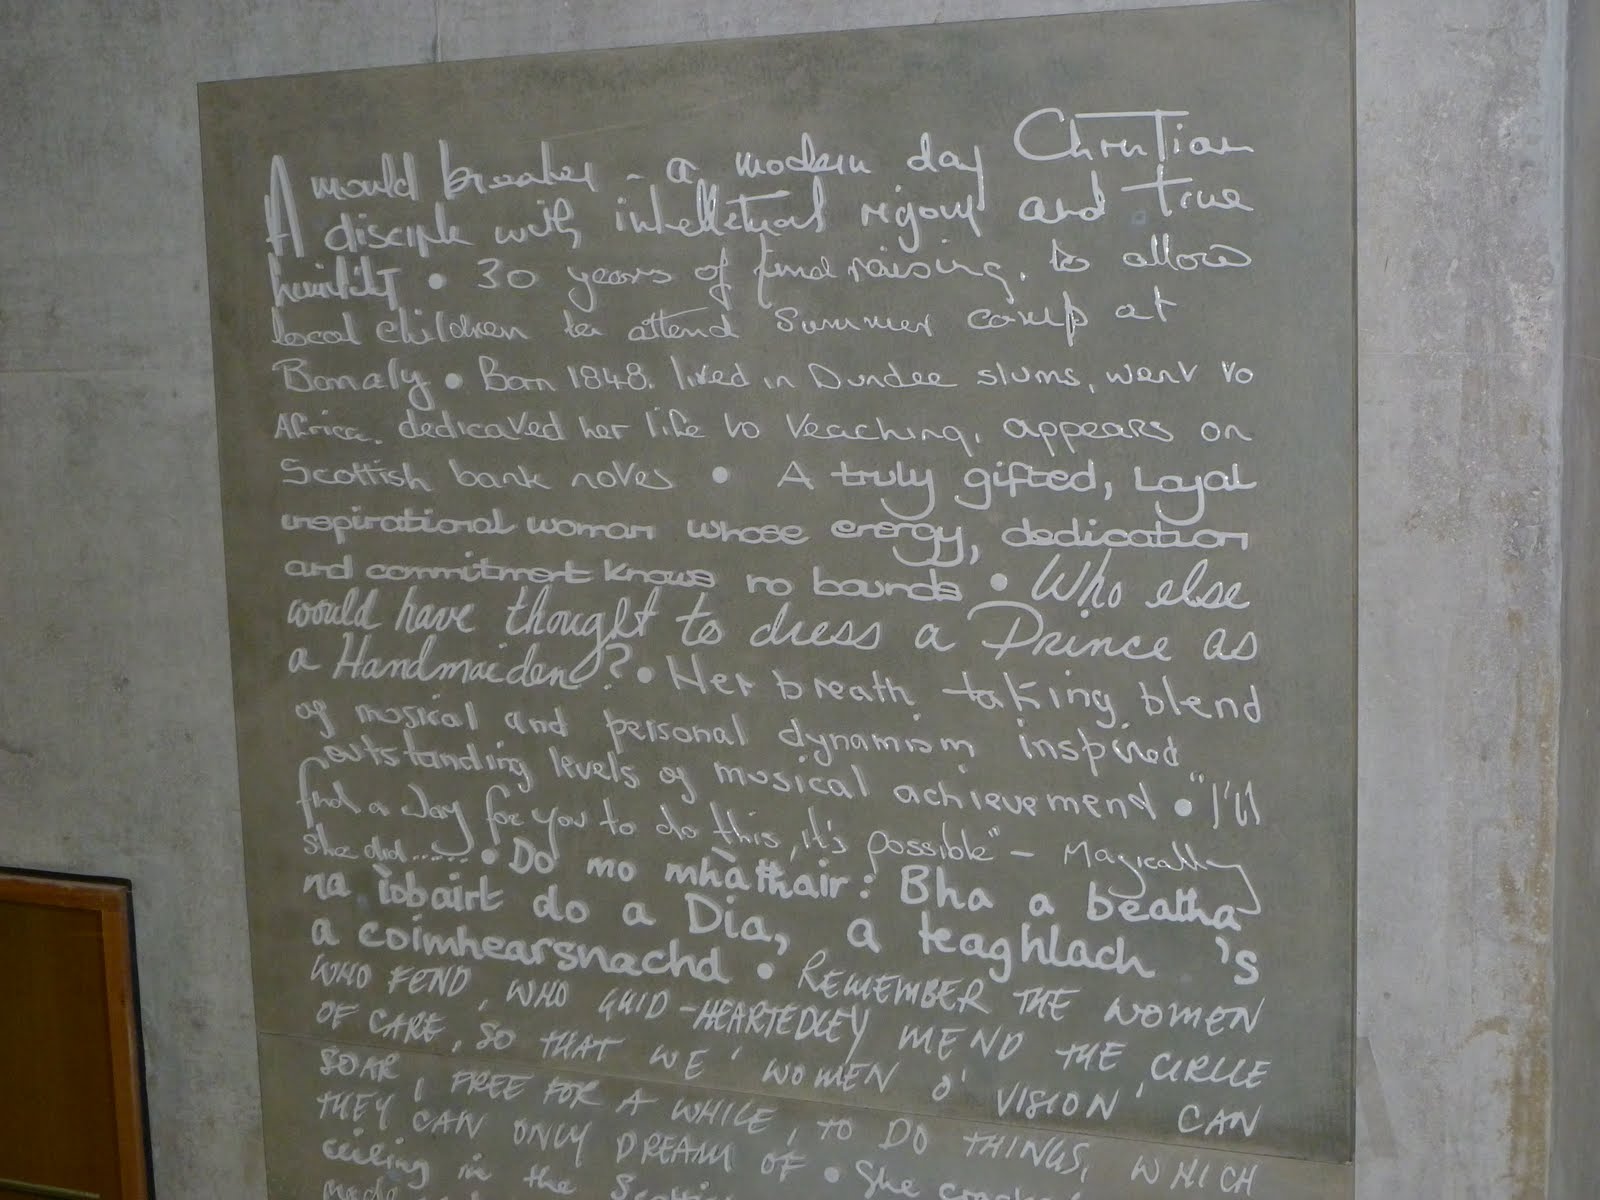 A mould breaker - a modern day Christian
disciple with intellectual rigour and true
humility • 30 years of fundraising, to allow
local children to attend Summer camp at
Bonaly • Born 1848, lived in Dundee slums, went to
Africa, dedicated her life to teaching, appears on
Scottish bank notes • A truly gifted, loyal
inspirational woman whose energy, dedication
and commitment knows no bounds • Who else
would have thought to dress a Prince as
a Handmaiden? • Her breath taking blend
of musical and personal dynamism inspired
outstanding levels of musical achievement • "I'll
find a way for you to do this, it's possible" - Magically
she did..... • Do mo mhàthair: Bha a beatha
na ìobairt do a Dia, a teaghlach 's
a coimhearsnachd • REMEMBER THE WOMEN
WHO FEND, WHO GUID-HEARTEDLEY MEND THE CIRCLE
OF CARE, SO THAT WE 'WOMEN O' VISION' CAN
SOAR, FREE FOR A WHILE, TO DO THINGS, WHICH
THEY CAN ONLY DREAM OF • She cracked
ceiling in the
made